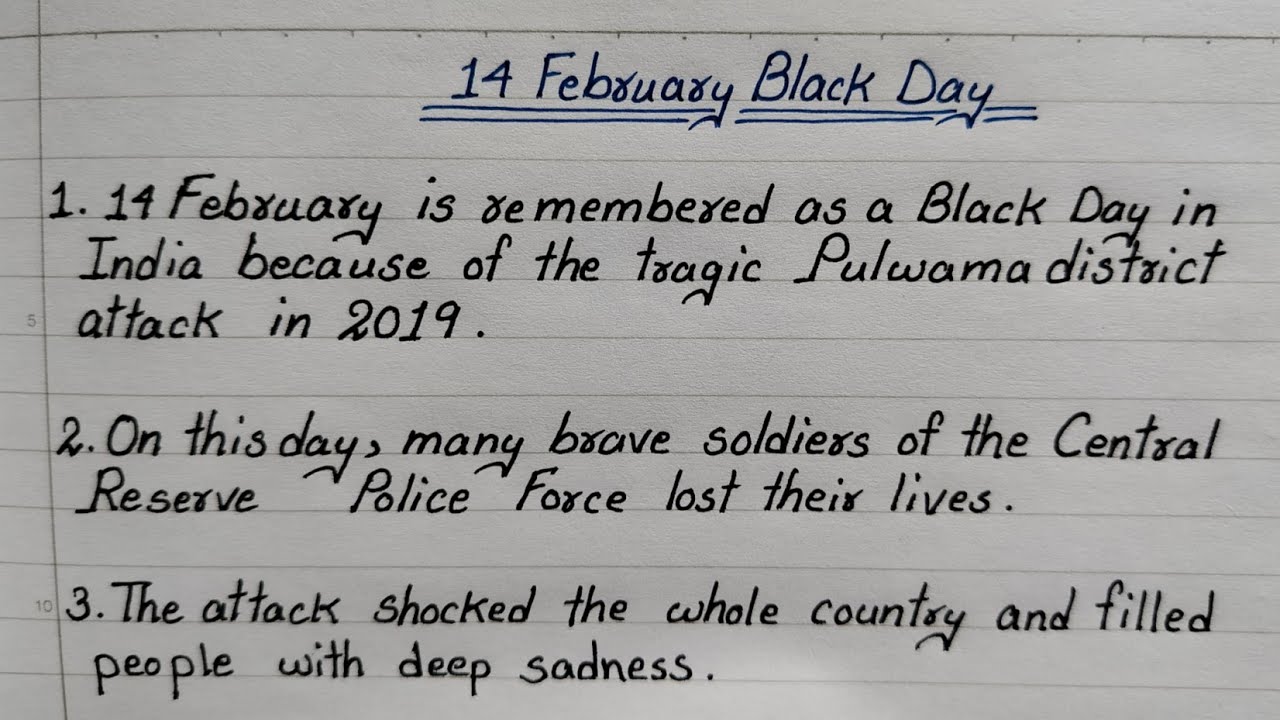 14 February Black Day
1. 14 February is remembered as a Black Day in
India because of the tragic Pulwama district
5 attack in 2019.
2. On this day, many brave soldiers of the Central
Reserve Police Force lost their lives.
10 3. The attack shocked the whole country and filled
people with deep sadness.